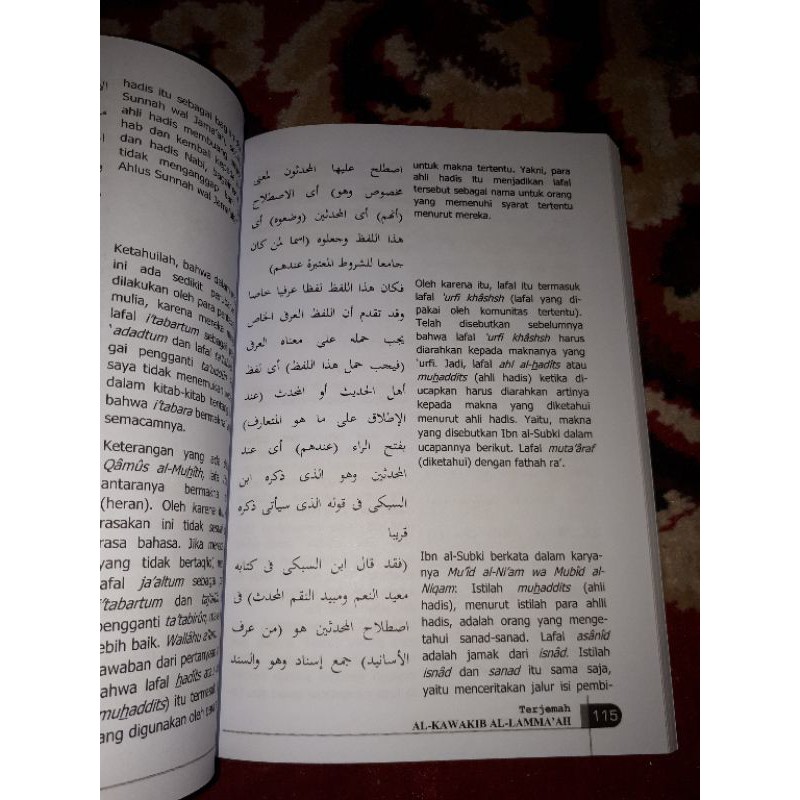 hadis itu sebagai
Sunnah wal Jama'ah,
ahli hadis membuang
hab dan kembali
dan hadis Nabi,
tidak menganggap
Ahlus Sunnah wal
Ketahuilah, bahwa dalam
ini ada sedikit
dilakukan oleh para
mulia, karena mereka
lafal i'tabartum sebagai
'adadtum dan lafal
gai pengganti
saya tidak menemukan
dalam kitab-kitab
bahwa i'tabara bermakna
semacamnya.
Keterangan yang ada
Qâmûs al-Muhîth,
antaranya bermakna
(heran). Oleh karena
rasakan ini tidak
rasa bahasa. Jika
yang tidak
lafal ja'altum sebagai
i'tabartum dan
pengganti ta'tabirûn,
lebih baik. Wallâhu
jawaban dari
bahwa lafal hadîts
muhaddits) itu termasuk
yang digunakan oleh
اصطلح عليها المحدثون لمعنى
مخصوص وهو) أى الاصطلاح
(أنهم) أى المحدثين (وضعوه) أى
هذا اللفظ وجعلوه (اسما لمن كان
جامعا للشروط المعتبرة عندهم)
فكان هذا اللفظ لفظا عرفيا خاصا
وقد تقدم أن اللفظ العرفى الخاص
يجب حمله على معناه العرفى
(فيجب حمل هذا اللفظ) أى لفظ
أهل الحديث أو المحدث (عند
الإطلاق على ما هو المتعارف)
بفتح الراء (عندهم) أى عند
المحدثين وهو الذى ذكره ابن
السبكى فى قوله الذى سيأتى ذكره
قريبا
(فقد قال ابن السبكى فى كتابه
معيد النعم ومبيد النقم المحدث) فى
اصطلاح المحدثين هو (من عرف
الأسانيد) جمع إسناد وهو والسند
untuk makna tertentu. Yakni, para
ahli hadis itu menjadikan lafal
tersebut sebagai nama untuk orang
yang memenuhi syarat tertentu
menurut mereka.
Oleh karena itu, lafal itu termasuk
lafal 'urfi khâshsh (lafal yang di-
pakai oleh komunitas tertentu).
Telah disebutkan sebelumnya
bahwa lafal 'urfi khâshsh harus
diarahkan kepada maknanya yang
'urfi. Jadi, lafal ahl al-hadîts atau
muhaddits (ahli hadis) ketika di-
ucapkan harus diarahkan artinya
kepada makna yang diketahui
menurut ahli hadis. Yaitu, makna
yang disebutkan Ibn al-Subki dalam
ucapannya berikut. Lafal muta'âraf
(diketahui) dengan fathah ra'.
Ibn al-Subki berkata dalam karya-
nya Mu'îd al-Ni'am wa Mubîd al-
Niqam: Istilah muhaddits (ahli
hadis), menurut istilah para ahlli
hadis, adalah orang yang menge-
tahui sanad-sanad. Lafal asânîd
adalah jamak dari isnâd. Istilah
isnâd dan sanad itu sama saja,
yaitu menceritakan jalur isi pembi-
Terjemah
AL-KAWAKIB AL-LAMMA'AH
115